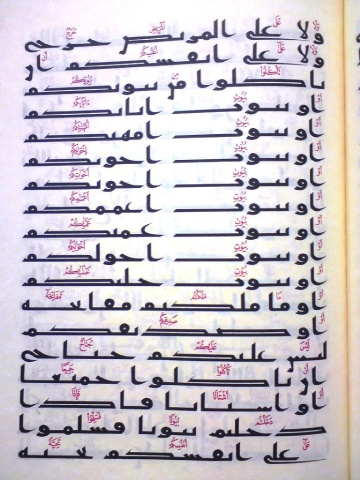 ولا على المريض حرج
ولا على انفسكم ان
تاكلوا من بيوتكم
او بيوت ابائكم
او بيوت امهتكم
او بيوت اخونكم
او بيوت اخوتكم
او بيوت اعممكم
او بيوت عمتكم
او بيوت اخولكم
او بيوت خلتكم
او ما ملكتم مفاتحه
او صديقكم
ليس عليكم جناح
ان تاكلوا جميعا
او اشتاتا فاذا
دخلتم بيوتا فسلموا
على انفسكم تحية